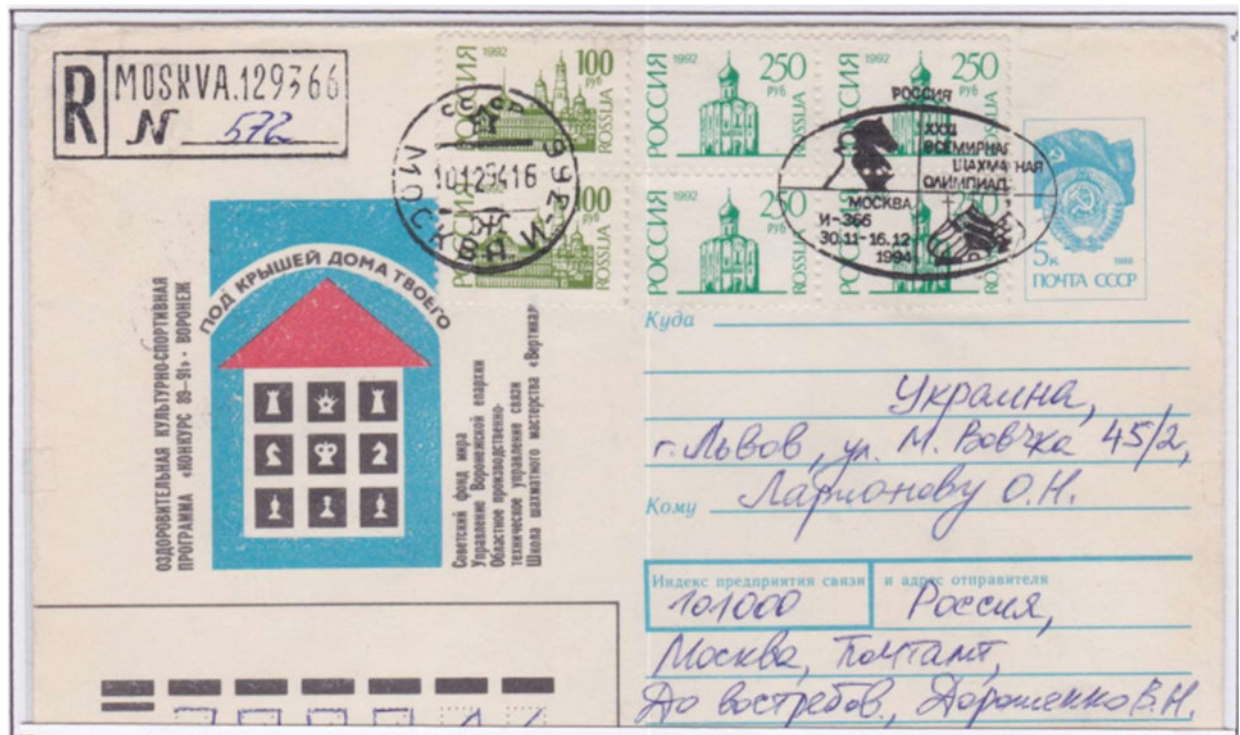 R MOSKVA.129366
N 572
РОССИЯ 1992 100 руб ROSSIJA
РОССИЯ 1992 250 руб ROSSIJA
РОССИЯ 1992 250 руб ROSSIJA
РОССИЯ 1992 100 руб ROSSIJA
РОССИЯ 1992 250 руб ROSSIJA
РОССИЯ 1992 250 руб ROSSIJA
СССР
МОСКВА И-366
РОССИЯ
ВСЕМИРНАЯ
ШАХМАТНАЯ
ОЛИМПИАДА
МОСКВА
И-366
30.11-16.12
1994
5к 1988
ПОЧТА СССР
ПОД КРЫШЕЙ ДОМА ТВОЕГО
ОЗДОРОВИТЕЛЬНАЯ КУЛЬТУРНО-СПОРТИВНАЯ
ПРОГРАММА «КОНКУРС 89-91» - ВОРОНЕЖ
Советский фонд мира
Управление Воронежской епархии
Областное производственно-
техническое управление связи
Школа шахматного мастерства «Вертикаль
Куда
Украина,
г. Львов, ул. М. Вовчка 45/2,
Кому Ларионову О.Н.
Индекс предприятия связи и адрес отправителя
101000 Россия,
Москва, Почтамт,
До востребов., Дорошенко В.Н.